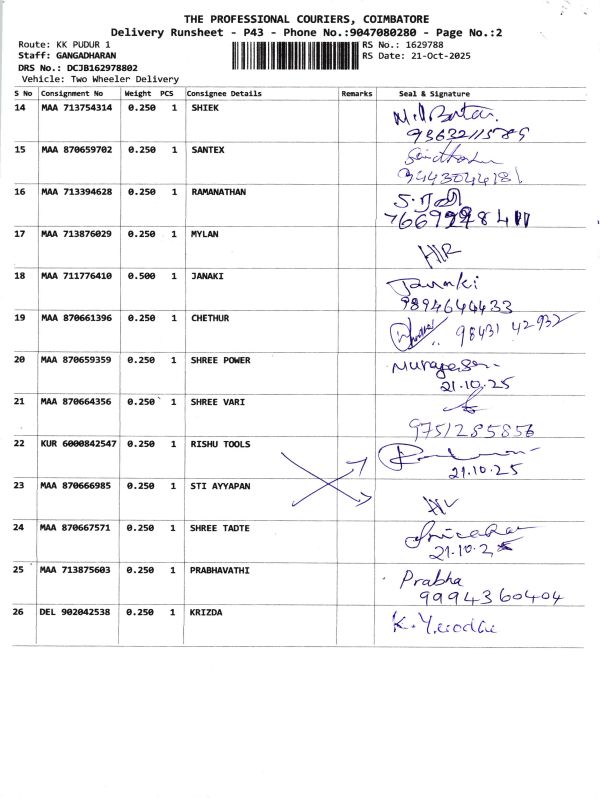 THE PROFESSIONAL COURIERS, COIMBATORE
Delivery Runsheet - P43 - Phone No.:9047080280 - Page No.:2
Route: KK PUDUR 1 RS No.: 1629788
Staff: GANGADHARAN RS Date: 21-Oct-2025
DRS No.: DCJB162978802
Vehicle: Two Wheeler Delivery
S No Consignment No Weight PCS Consignee Details Remarks Seal & Signature
14 MAA 713754314 0.250 1 SHIEK
9363211589
15 MAA 870659702 0.250 1 SANTEX
9443044181
16 MAA 713394628 0.250 1 RAMANATHAN
17 MAA 713876029 0.250 1 MYLAN
18 MAA 711776410 0.500 1 JANAKI Janaki
9894644433
19 MAA 870661396 0.250 1 CHETHUR 98431 42932
20 MAA 870659359 0.250 1 SHREE POWER
21.10.25
21 MAA 870664356 0.250 1 SHREE VARI
9751285856
22 KUR 6000842547 0.250 1 RISHU TOOLS
21.10.25
23 MAA 870666985 0.250 1 STI AYYAPAN
24 MAA 870667571 0.250 1 SHREE TADTE
21.10.25
25 MAA 713875603 0.250 1 PRABHAVATHI Prabha
9994360404
26 DEL 902042538 0.250 1 KRIZDA